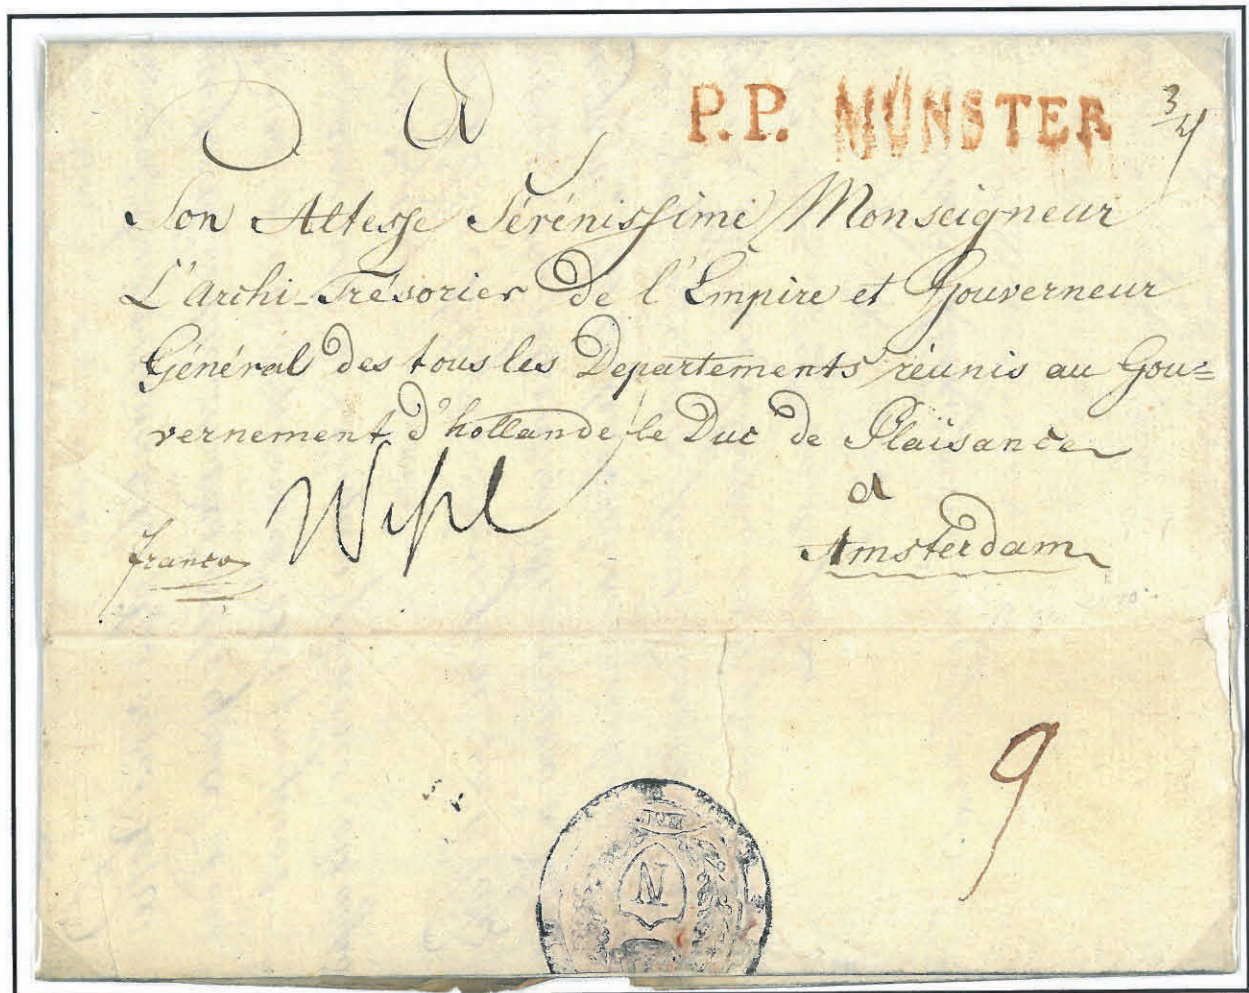 A
P.P. MÜNSTER
3/4
Son Altesse Sérénissime Monseigneur
L'Archi-Trésorier de l'Empire et Gouverneur
Général des tous les Departements réunis au Gou=
vernement d'hollande, le Duc de Plaisance
a
Amsterdam
franco
9
N